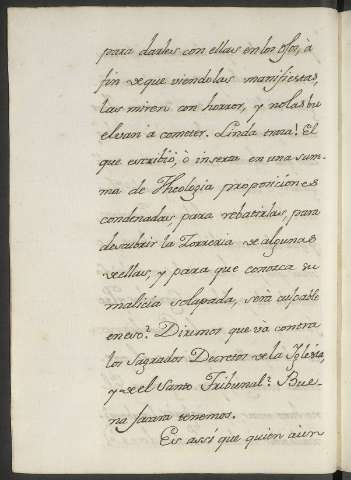 para darles con ellas en los ojos, à
fin de que viendolas manifiestas,
las miren con horror, y no las bu
elvan à cometer. Linda traza! El
que escribiò, ò inserta en una sum-
ma de Theologia proposiciones
condenadas, para rebatirlas, para
descubrir la Torreria de algunas
de ellas, y para que conozca su
malicia solapada, serà culpable
en eso? Diremos que và contra
los Sagrados Decretos de la Iglesia,
y de el Santo Tribunal? Bue-
na farara tenemos.
Es assi que quien aun